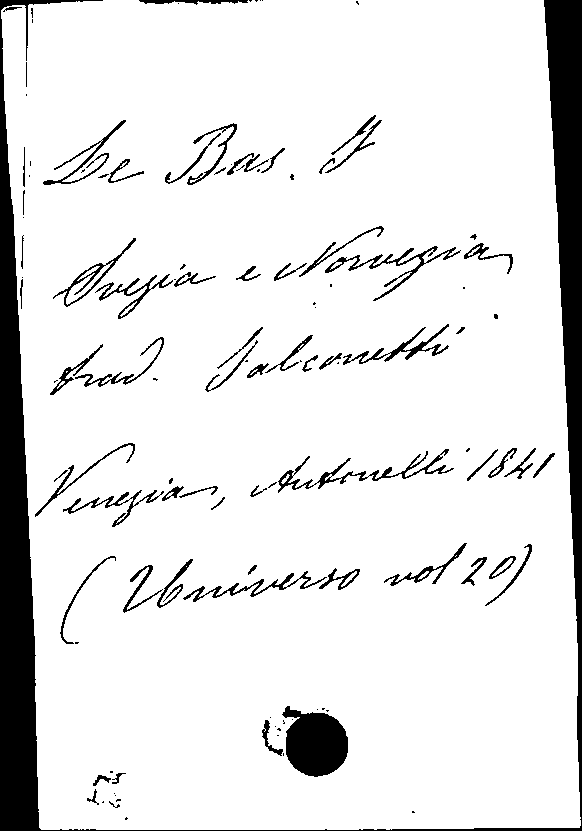 Le Bas. F
Svezia e Norvegia
trad. Falconetti
Venezia, Antonelli 1841
(Universo vol 20)